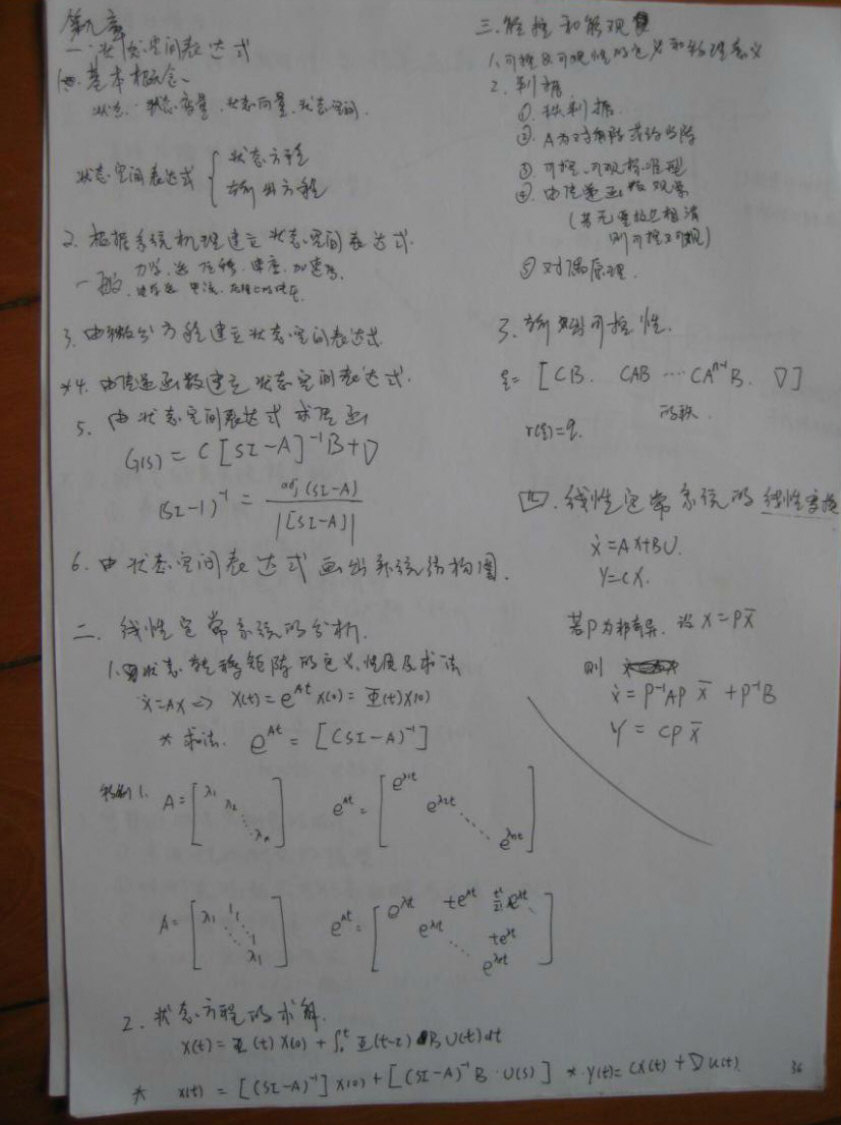 第九章
一. 状态空间表达式
1. 基本概念.
状态. 状态变量. 状态向量. 状态空间.
状态空间表达式 { 状态方程
输出方程
2. 根据系统机理建立状态空间表达式.
一般 力学. 位移. 速度. 加速度.
3. 由微分方程建立状态空间表达式
*4. 由传递函数建立状态空间表达式.
5. 由状态空间表达式求传函
G(s) = C[SI-A]⁻¹B+D
(SI-1)⁻¹ = adj(SI-A) / |[SI-A]|
6. 由状态空间表达式画出系统结构图.
二. 线性定常系统的分析.
1. 状态转移矩阵的定义、性质及求法
ẋ=Ax => X(t) = e^{At} x(0) = Φ(t)X(0)
* 求法. e^{At} = [(SI-A)⁻¹]
特例1. A = [λ₁ λ₂ ⋱ λₙ] e^{At} = [e^{λ₁t} e^{λ₂t} ⋱ e^{λₙt}]
A = [λ₁ 1 ⋱ 1 λ₁] e^{At} = [e^{λt} te^{λt} e^{λt} ⋱ te^{λt} e^{λt}]
2. 状态方程的求解.
X(t) = Φ(t) X(0) + ∫₀ᵗ Φ(t-τ) B U(t) dt
* x(t) = [(SI-A)⁻¹] x(0) + [(SI-A)⁻¹ B · U(S)] * Y(t) = CX(t) + D U(t)
三. 能控和能观
1. 可控及可观性的定义和物理意义
2. 判据.
① 秩判据.
② A为对角阵或约当阵
③ 可控、可观标准型
④ 由传递函数观察
(若无零极点相消
则可控又可观)
⑤ 对偶原理.
3. 输出可控性.
= [CB. CAB ⋯ CA^{n-1}B. D]
的秩.
= q.
四. 线性定常系统的线性变换
ẋ = AX+BU.
Y=CX.
若P为非奇异. 设 X=PX̄
则
ẋ = P⁻¹AP X̄ + P⁻¹B
Y = CP X̄
36